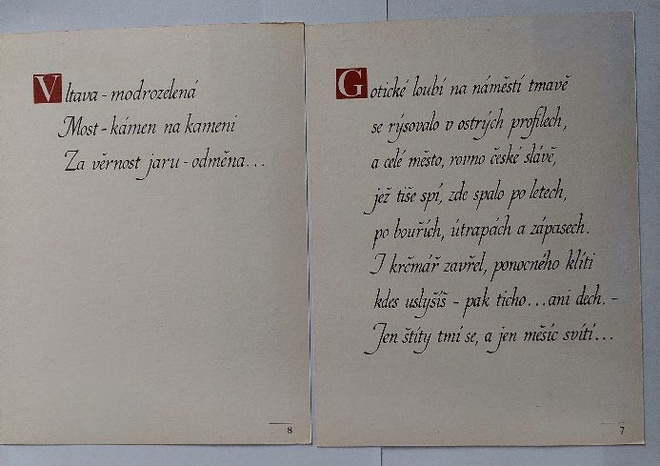 Vltava - modrozelená
Most - kámen na kameni
Za věrnost jaru - odměna...
8
Gotické loubí na náměstí tmavě
se rýsovalo v ostrých profilech,
a celé město, rovno české slávě,
jež tiše spí, zde spalo po letech,
po bouřích, útrapách a zápasech.
I krčmář zavřel, ponocného klíti
kdes uslyšíš - pak ticho...ani dech. -
Jen štíty tmí se, a jen měsíc svítí...
7